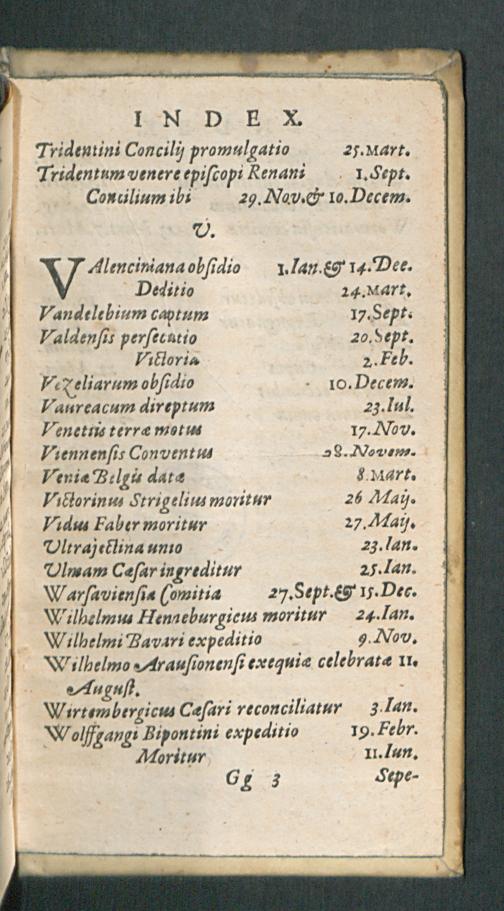 INDEX.
Tridentini Concilij promulgatio 25. Mart.
Tridentum venere episcopi Renani 1. Sept.
Concilium ibi 29. Nov. & 10. Decem.
V.
VAlenciniana obsidio 1. Ian. & 14. Dec.
Deditio 24. Mart.
Vandelebium captum 17. Sept.
Valdensis persecutio 20. Sept.
Victoria 2. Feb.
Vezeliarum obsidio 10. Decem.
Vaureacum direptum 23. Iul.
Venetiis terræ motus 17. Nov.
Viennensis Conventus 28. Novem.
Veniæ Belgis datæ 8. Mart.
Victorinus Strigelius moritur 26 Maij.
Vidus Faber moritur 27. Maij.
Vltrajectina unio 23. Ian.
Vlmam Cæsar ingreditur 25. Ian.
Warsaviensia Comitia 27. Sept. & 15. Dec.
Wilhelmus Henneburgicus moritur 24. Ian.
Wilhelmi Bavari expeditio 9. Nov.
Wilhelmo Arausionensi exequiæ celebratæ 11.
August.
Wirtembergicus Cæsari reconciliatur 3. Ian.
Wolffgangi Bipontini expeditio 19. Febr.
Moritur 11. Iun.
Gg 3 Sepe-